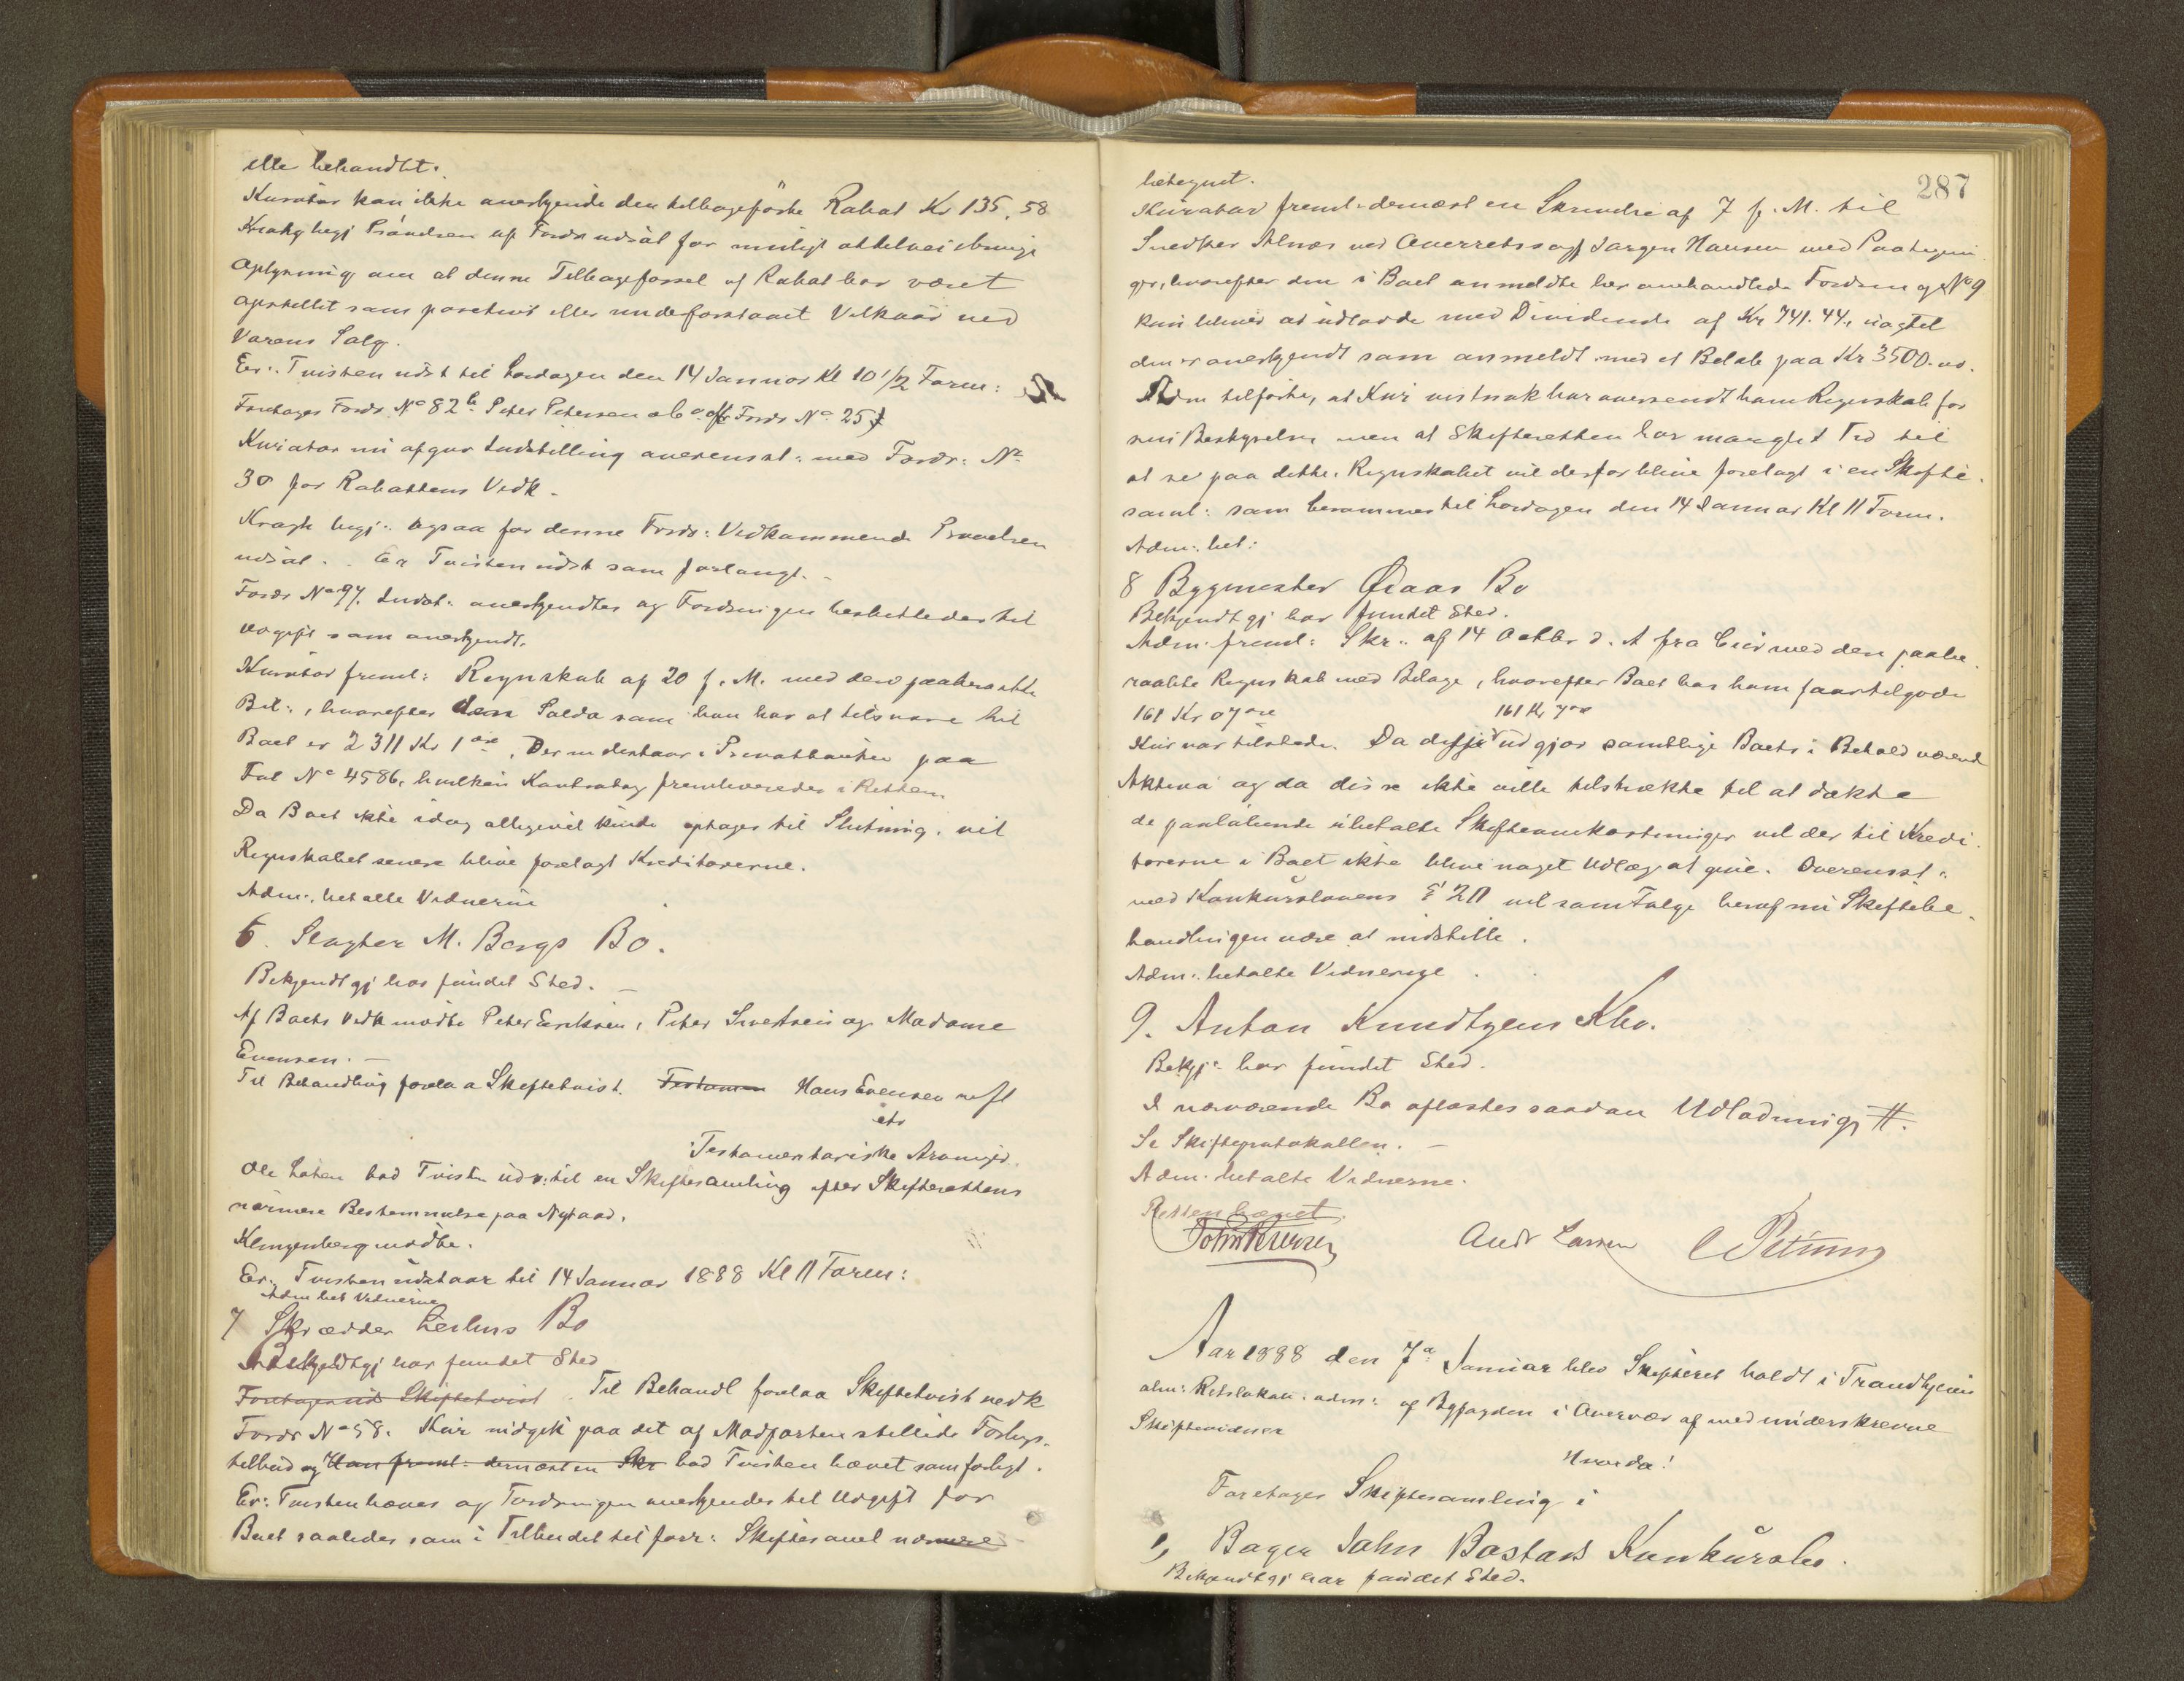 elle behandlet.
Kurator kan ikke anerkjende den tilbageförte Rabat Kr 135,58
Kragh begj Prövelsen af Fordr udsat for muligt at tilveiebringe
Oplysning om at denne Tilbageførsel af Rabat har været
opstillet som positivt eller underforstaaet Vilkaar ved
Varens Salg.
Er: Tvisten udst til Lørdagen den 14 Januar Kl 10 1/2 Form:
Foretages Fordr. No 82 b. Peter Petersen & Co Fordr No 25
Kurator nu afgav Indstilling overensst: med Fordr: No
30 for Rabattens Vedk.
Kragh begj: ogsaa for denne Fordr: Vedkommende Prøvelsen
udsat. Er Tvisten udst som forlangt.
Fordr No 97. Indst: anerkjendtes og Fordringen besluttedes til
Udgift som anerkjendt.
Kurator freml: Regnskab af 20 f. M. med dens paaberaabte
Bil:, hvorefter den Saldo som han har at tilsvare til
Boet er 2311 Kr 1 øre. Der indestaar i Privatbanken paa
Fol No 4586, hvilken Kontrabog fremleveredes i Retten.
Da Boet ikke idag alligevel kunde optages til Slutning, vil
Regnskabet senere blive forelagt Kreditorerne.
Adm:, bet alle Vidnerne
6. Slagter M. Bergs Bo.
Bekjendtgj har fundet Sted.
Af Boets Vedk mødte Peter Eriksen, Peter Sivertsen og Madame
Evensen.
Til Behandling forelaa Skiftetvist. Testamen Hans Evensen
etr
Testamentariske Arvinger.
Ole Loken bad Tvisten uds: til en Skiftesamling efter Skifterettens
nærmere Bestemmelse paa Nytaar.
Klingenberg mødte.
Er: Tvisten udstaar til 14 Januar 1888 Kl 11 Form:
Adm bet Vidnerne
7 Skrædder Bo
Bekjendtgj har fundet Sted
Foretages ud Skiftetvist. Til Behandl forelaa Skiftetvist vedk
Fordr No 58. Kur indgik paa det af Modparten stillede Forligs-
tilbud og Han freml: dernæst en Skr bad Tvisten hævet som forligt.
Er: Tvisten hæves og Fordringen anerkjendes til Udgift for
Boet saaledes som i Tilbudet tilfört: Skiftesaml nærmere
287
betegnet.
Kurator freml. dernæst en Skrivelse af 7 f. M. til
Snedker Alnæs ved Overretssagf Jørgen Hansen med Paategnin
ger, hvorefter den i Boet anmeldte her omhandlede Fordring No 9
kun bliver at udlodde med Dividende af Kr 741.44, uagtet
den er anerkjendt som anmeldt med et Beløb paa Kr 3500.
Adm tilførte, at Kur vistnok har oversendt ham Regnskab for
sin Bestyrelse men at Skifteretten har manglet Tid til
at se paa dette. Regnskabet vil derfor blive forelagt i en Skifte-
saml: som berammes til Lørdagen den 14 Januar Kl 11 Form.
Adm: bet:
8 Bygmester Øiaas Bo
Bekjendtgj har fundet Sted.
Adm freml: Skr: af 14 Octbr d. A fra Cur med den paabe-
raabte Regnskab med Bilage, hvorefter Boet hos ham faar tilgode
161 Kr 07 øre 161 Kr 7 øre
Kur var tilstede. Da disse udgjør samtlige Boets i Behold værend
Aktiva og da disse ikke ville tilstrække til at dække
de paaløbende ubetalte Skifteomkostninger vil der til Kredi-
torerne i Boet ikke blive noget Udlæg at give. Overensst:
med Konkurslovens § 20 vil som Følge heraf nu Skiftebe-
handlingen være at indstille.
Adm: betalte Vidnerne.
9. Anton Knudtzens Kbo.
Bekgj: har fundet Sted.
I nærværende Bo aflæstes saadan Udlodning #.
Se Skifteprotokollen.
Adm. betalte Vidnerne.
Retten hævet.
Andr Larsen
Aar 1888 den 7de Januar blev Skifteret holdt i Trondhjems
alm: Retslokale: adm: af Byfogden i Overvær af medunderskrevne
Skiftevidner
Hvorda!
Foretages Skiftesamling i
1, Bager John Bostads Konkursbo.
Bekjendtgj har fundet Sted.